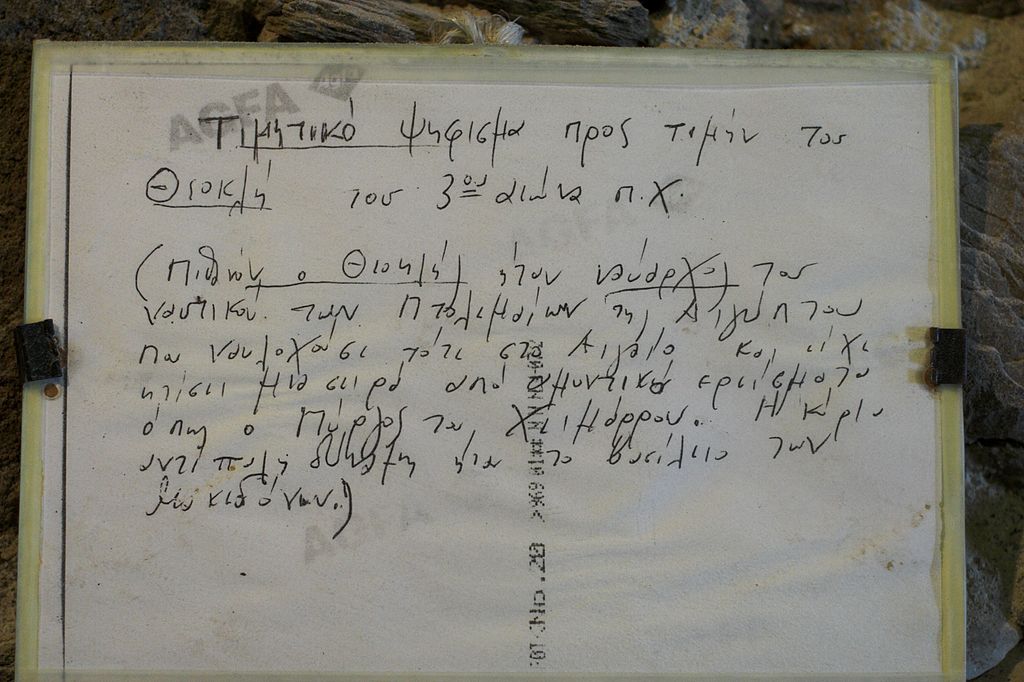 AGFA
Τιμητικό ψήφισμα προς τιμήν του
Θεοκλή του 3ου αιώνα π.Χ.
(Πιθανόν ο Θεοκλή) ήταν ναύαρχος του
ναυτικού των Πτολεμαίων της Αιγύπτου
που ναυλοχούσε τότε στο Αιγαίο και είχε
κτίσει μια σειρά από αμυντικά ερείσματα
όπως ο Πύργος του Χειμάρρου. Η κύρια
αντίπαλη δύναμη ήταν το βασίλειο των
Μακεδόνων.)
AGFA